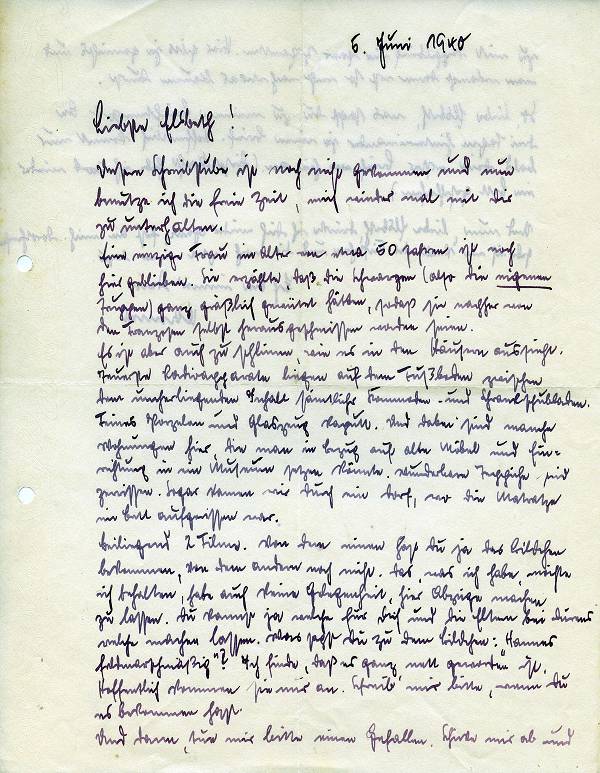 5. Juni 1940
Liebste Elsbeth!
Unsere Schreibstube ist noch nicht gekommen und nun
benutze ich die freie Zeit, mich wieder mal mit Dir
zu unterhalten.
Eine einzige Frau im Alter von etwa 50 Jahren ist noch
hier geblieben. Sie erzählte, daß die Schwarzen (also die eigenen
Truppen) ganz gräßlich gewütet hätten, sodaß sie nachher von
den Franzosen selbst herausgeschmissen worden seien.
Es ist aber auch zu schlimm, wie es in den Häusern aussieht.
Teuerste Radioapparate liegen auf dem Fußboden zwischen
dem umherliegenden Inhalt sämtlicher Kommoden- und Schrankschubladen.
Feines Porzelan und Glaszeug kaputt. Und dabei sind manche
Wohnungen hier, die man in bezug auf alte Möbel und Ein-
richtung in ein Museum setzen könnte. Wunderbare Teppiche sind
zerrissen. Sogar kamen wir durch ein Dorf, wo die Matratze
im Bett aufgerissen war.
Beiliegend 2 Filme. Von dem einen hast Du ja das Bildchen
bekommen, von dem andern noch nicht. Das, was ich habe, möchte
ich behalten, habe auch keine Gelegenheit, hier Abzüge machen
zu lassen. Du kannst ja welche für Dich und die Eltern bei
welche machen lassen. Was sagst Du zu dem Bildchen: "Hannes
feldmarschmäßig"? Ich finde, daß es ganz nett geworden ist.
Hoffentlich kommen sie nur an. Schreib mir bitte, wenn Du
es bekommen hast.
Und dann, tue mir bitte einen Gefallen. Schicke mir ab und